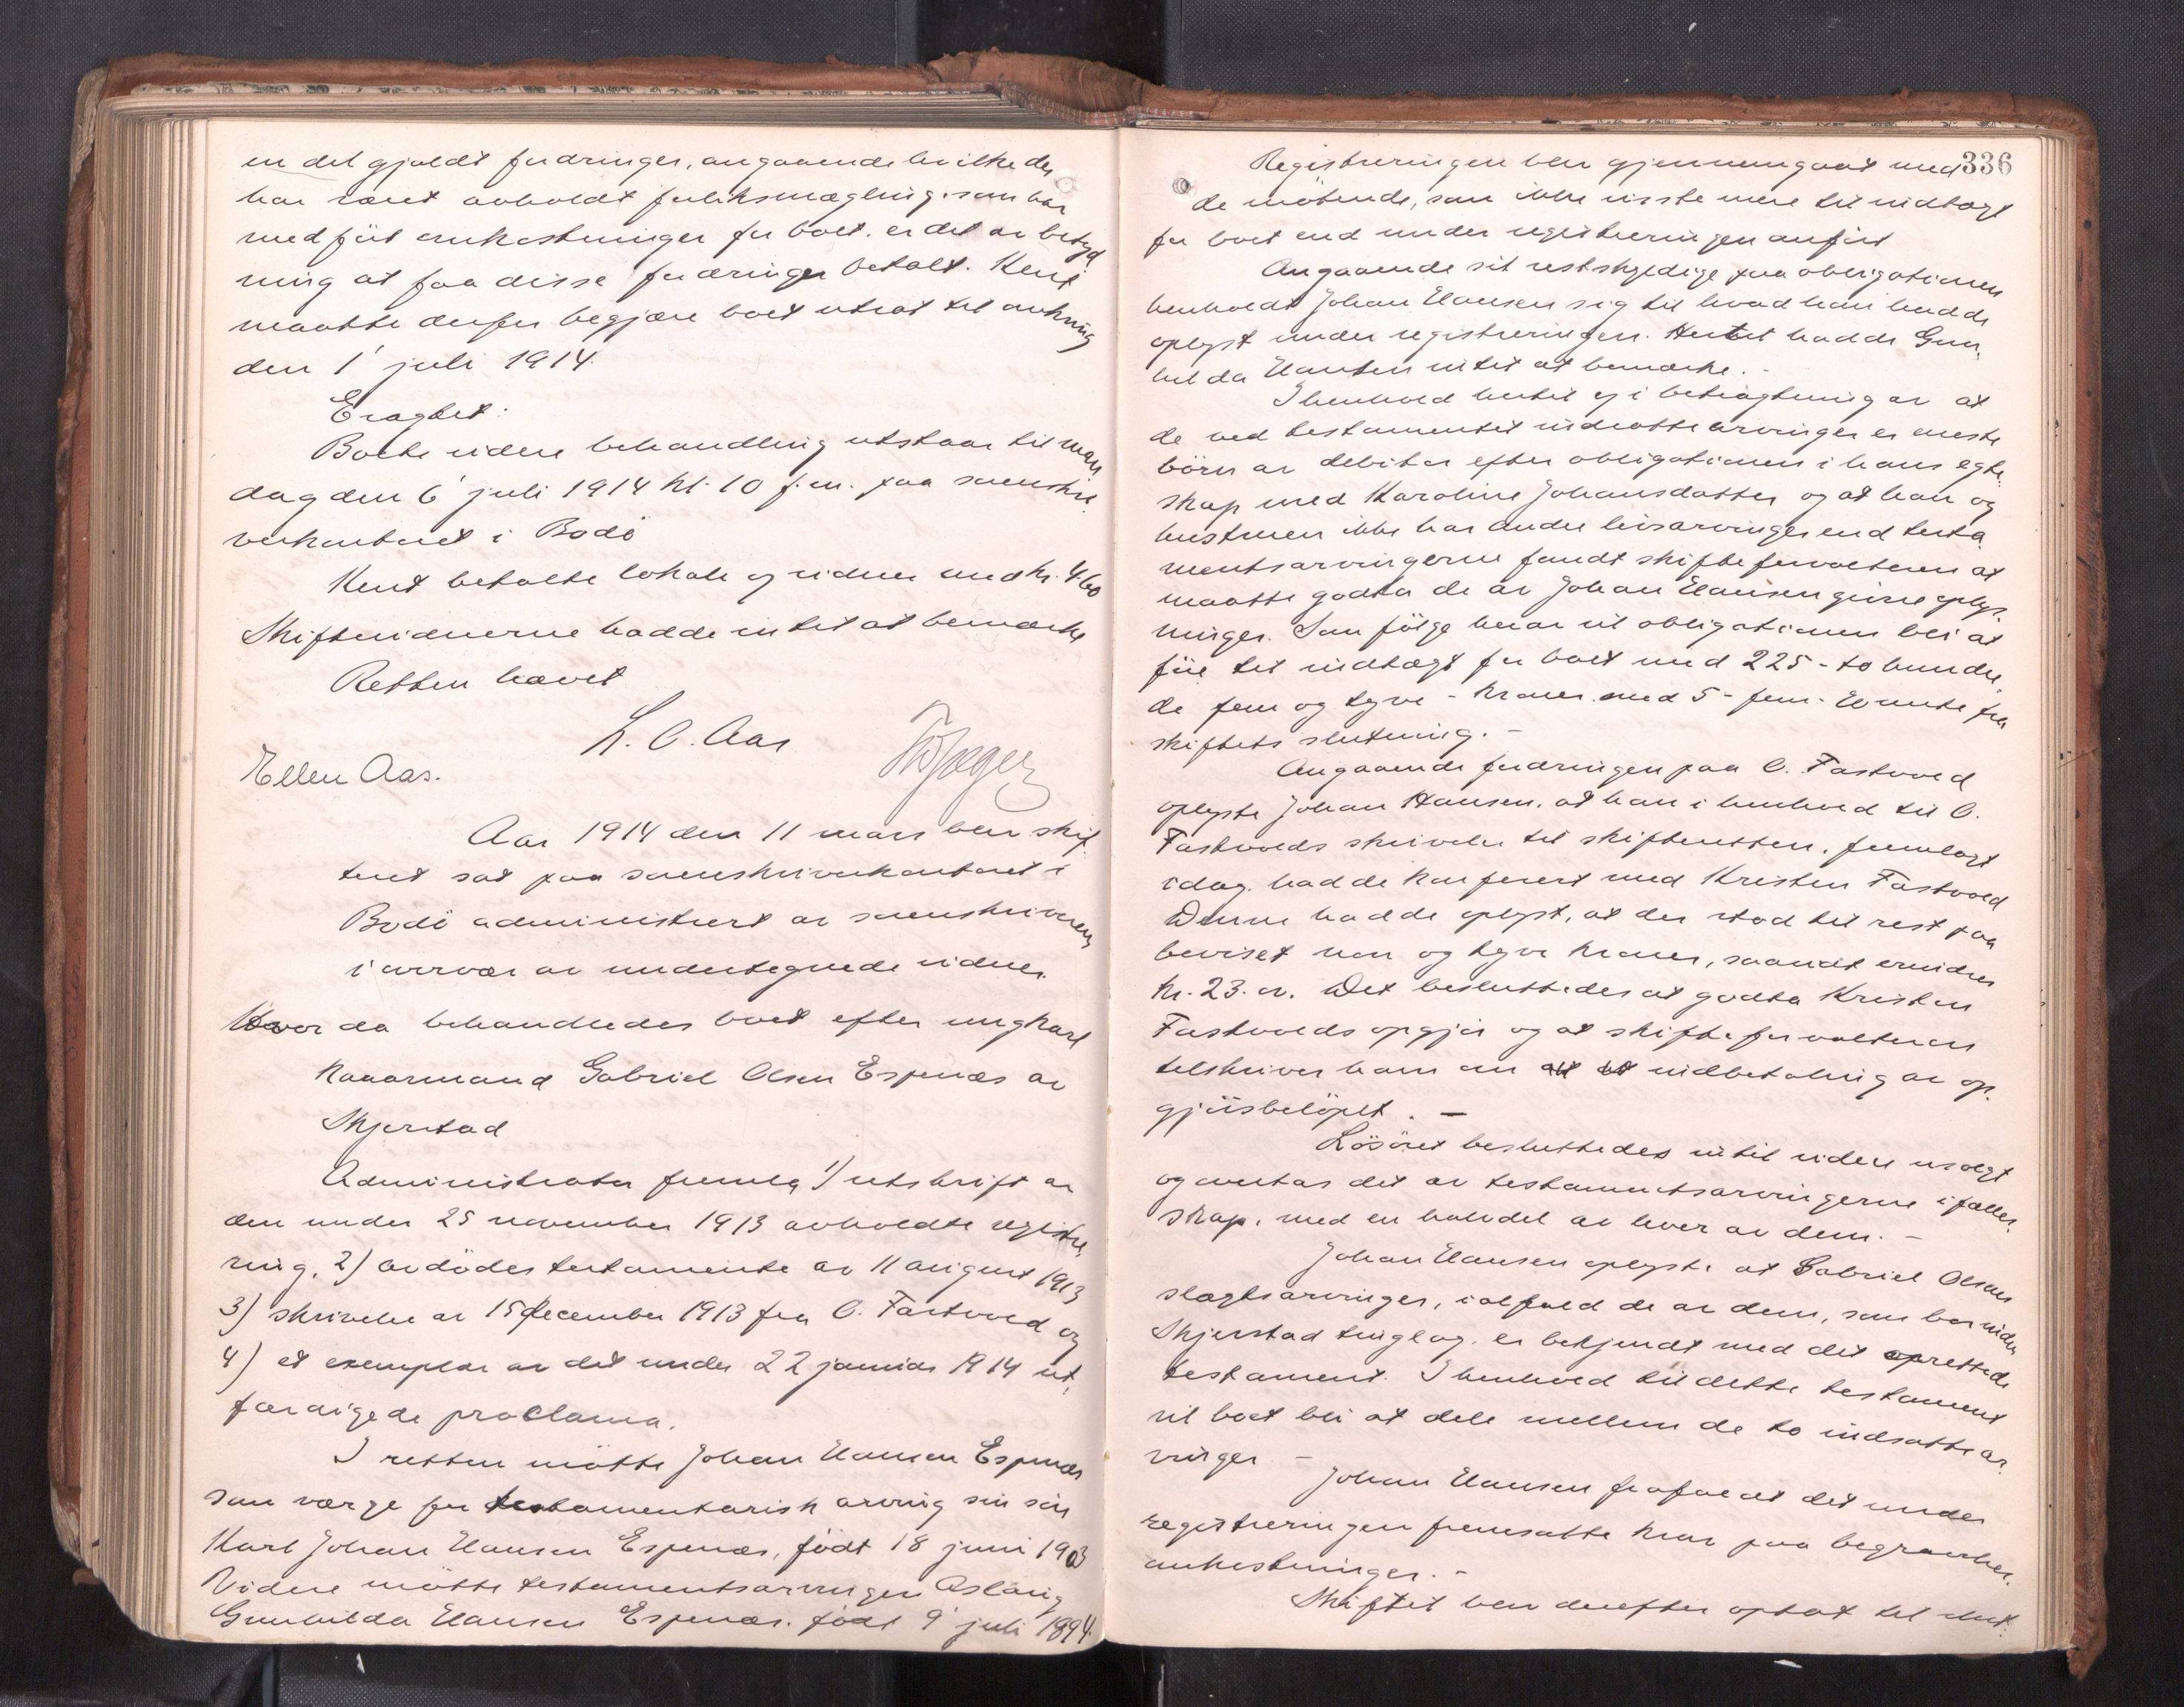 en del gjældt fordringer, angaaende hvilke der
har været avholdt forliksmægling, som har
medført omkostninger for boet, er det av betyd
ning at faa disse fordringer betalt. Kent
maatte derfor begjære boet utsat til omkring
den 1' juli 1914.
Eragtet:
Boets videre behandling utstaar til man
dag den 6' juli 1914 kl. 10 f.m. paa sorenskri
verkontoret i Bodö
Kent betalte lokale og vidner med kr. 4.60
Skiftevidnerne hadde intet at bemærke
Retten hævet
L. O. Aas
Ellen Aas.
Aar 1914 den 11 mars blev skif
teret sat paa sorenskriverkontoret i
Bodö administrert av sorenskriveren
i nærvær av undertegnede vidner.
Hvor da behandledes boet efter ungkarl
kaarmand Gabriel Olsen Espenæs av
Skjerstad
Administrator fremla 1) utskrift av
den under 25 november 1913 avholdte registre
ring, 2) avdödes testamente av 11 august 1913
3) skrivelse av 15 december 1913 fra O. Fastvold og
4) et exemplar av det under 22 januar 1914 ut
færdigede proclama.
I retten mötte Johan Hansen Espenæs
som værge for testamentarisk arving sin sön
Karl Johan Hansen Espenæs, födt 18 juni 1903
Videre mötte testamentsarvingen Aslaug
Gunhilda Hansen Espenæs. födt 9' juli 1894.
336
Registreringen blev gjennemgaat med
de mötende, som ikke visste mere til indtægt
for boet end under registreringen anfört
Angaaende sit restskyldige paa obligationen
henholdt Johan Hansen sig til hvad han hadde
oplyst under registreringen. Hertil hadde Gun
hilda Hansen intet at bemærke. -
I henhold hertil og i betragtning av at
de ved testamentet indsatte arvinger er eneste
börn av debitor efter obligationen i hans egte
skap med Karoline Johansdatter og at han og
hustruen ikke har andre livsarvinger end testa
mentsarvingerne fandt skifteforvalteren at
maatte godta de av Johan Hansen givne oplys
ninger. Som fölge herav vil obligationen bli at
före til indtægt for boet med 225 - to hundre
de fem og tyve - kroner med 5 - fem - % rente fra
skiftets slutning. -
Angaaende fordringen paa O. Fastvold
oplyste Johan Hansen, at han i henhold til O.
Fastvolds skrivelse til skifteretten, fremlagt
idag, hadde konferert med Kristen Fastvold
Denne hadde oplyst, at der stod til rest paa
beviset og tyve kroner, saavidt erindres
kr. 23. Det besluttedes at godta Kristen
Fastvolds opgjör og at skifteforvalteren
tilskriver ham om indbetaling av op
gjörsbelöpet. -
Lösöret besluttedes intil videre usolgt
og overtas det av testamentsarvingerne i fælles
skap, med en halvdel av hver av dem. -
Johan Hansen oplyste at Gabriel Olsens
slegtsarvinger, ialfald de av dem, som bor inden
Skjerstad tinglag, er bekjendt med det oprettede
testament. I henhold til dette testament
vil boet bli at dele mellem de to indsatte ar
vinger -
Johan Hansen frafaldt det under
registreringen fremsatte krav paa begravelses
omkostninger. -
Skiftet blev derefter optat til slut